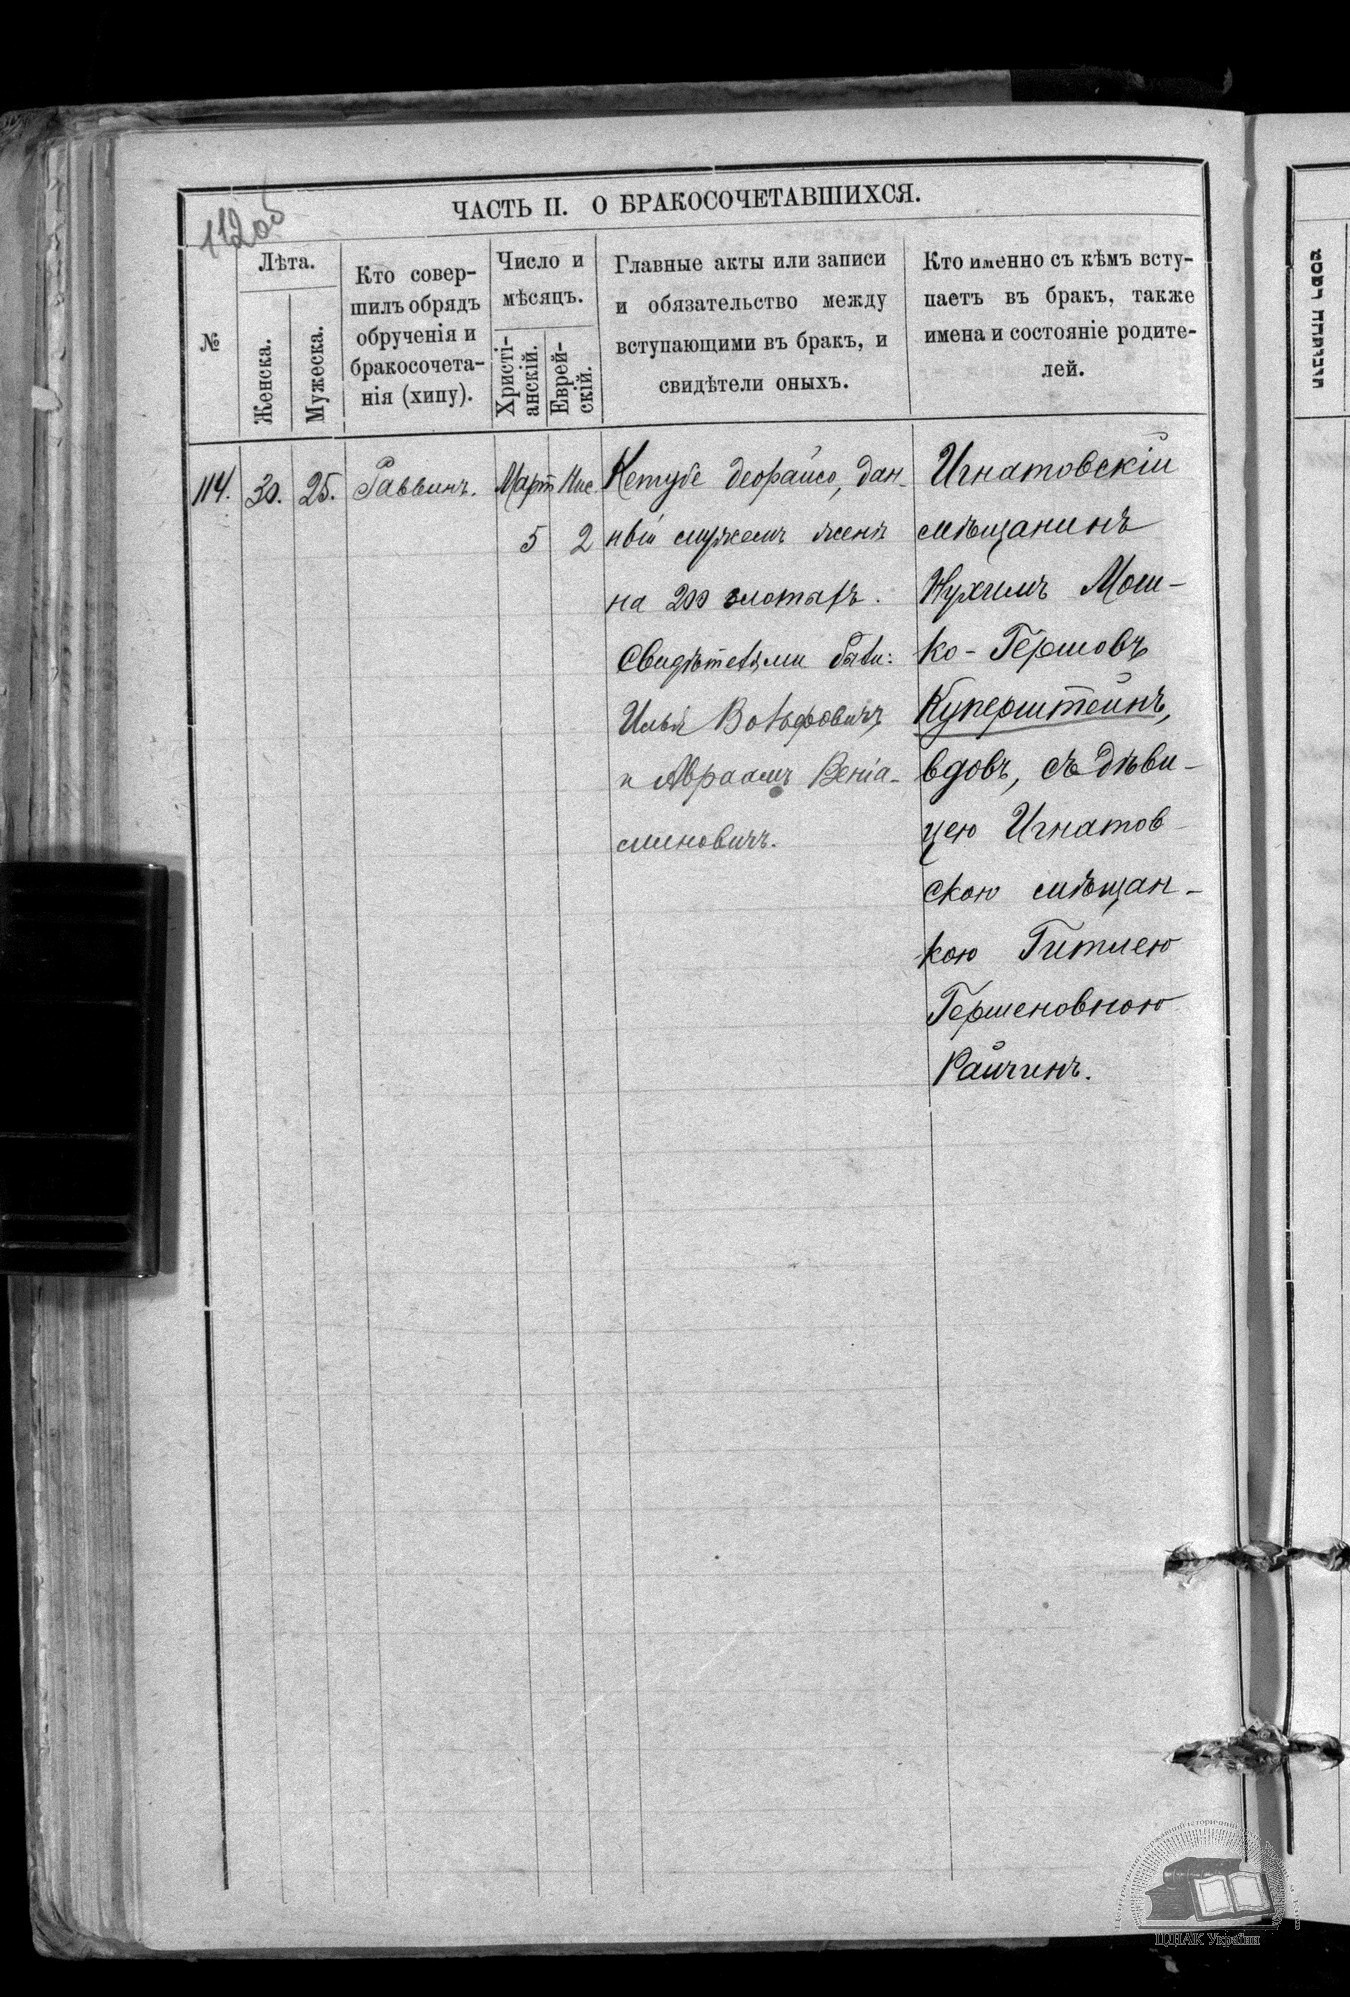 112об
ЧАСТЬ II. О БРАКОСОЧЕТАВШИХСЯ.
№
Лѣта.
Женска.
Мужеска.
Кто совер-
шилъ обрядъ
обрученія и
бракосочета-
нія (хипу).
Число и
мѣсяцъ.
Христі-
анскій.
Еврей-
скій.
Главные акты или записи
и обязательство между
вступающими въ бракъ, и
свидѣтели оныхъ.
Кто именно съ кѣмъ всту-
паетъ въ бракъ, также
имена и состояніе родите-
лей.
114.
30.
25.
Раввинъ.
Март
5
Нис.
2
Кетубе деорайсо, дан-
ный мужемъ женѣ
на 200 злотыхъ.
Свидѣтелями были:
Илья Вольфовичъ
и Авраамъ Веніа-
миновичъ.
Игнатовскій
мѣщанинъ
Нухимъ Мош-
ко-Гершовъ
Куперштейнъ,
вдовъ, съ дѣви-
цею Игнатов-
скою мѣщан-
кою Гитлею
Гершеновною
Райчинъ.
ЦДІАК України